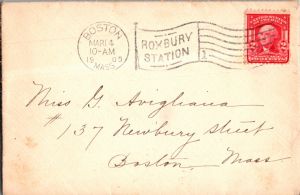 BOSTON
MAR 14
10-AM
1905
MASS.
ROXBURY
STATION
1
2 2
Miss G. Avigliana
#137 Newbury Street
Boston Mass